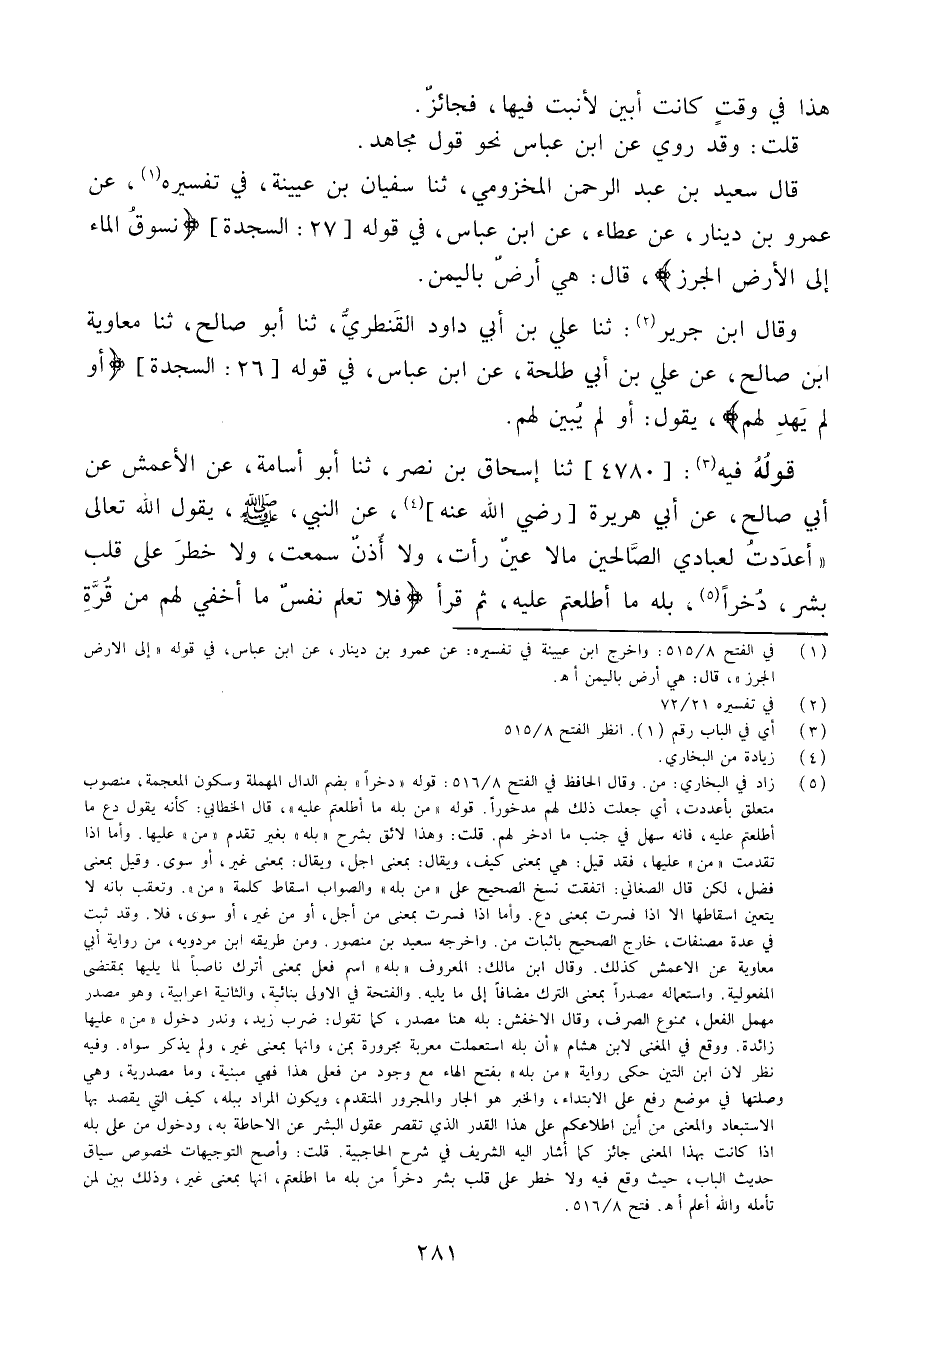 هذا في وقتٍ كانت أبين لأنبت فيها، فجائزٌ.
قلت: وقد روي عن ابن عباس نحو قول مجاهد.
قال سعيد بن عبد الرحمن المخزومي، ثنا سفيان بن عيينة، في تفسيره(١)، عن
عمرو بن دينار، عن عطاء، عن ابن عباس، في قوله [ ٢٧ : السجدة ] ﴿نسوقُ الماء
إلى الأرض الجرز﴾، قال: هي أرضٌ باليمن.
وقال ابن جرير(٢): ثنا علي بن أبي داود القَنطريُّ، ثنا أبو صالح، ثنا معاوية
ابن صالح، عن علي بن أبي طلحة، عن ابن عباس، في قوله [ ٢٦ : السجدة ] ﴿أو
لم يَهدِ لهم﴾، يقول: أو لم يُبين لهم.
قولُهُ فيه(٣): [ ٤٧٨٠ ] ثنا إسحاق بن نصر، ثنا أبو أسامة، عن الأعمش عن
أبي صالح، عن أبي هريرة [ رضي الله عنه ](٤)، عن النبي، ﷺ، يقول الله تعالى
« أعدَدتُ لعبادي الصَّالحين مالا عينٌ رأت، ولا أُذنٌ سمعت، ولا خطرَ على قلب
بشر، دُخراً(٥)، بله ما أطلعتم عليه، ثم قرأ ﴿فلا تعلم نفسٌ ما أخفي لهم من قُرَّةِ
(١) في الفتح ٥١٥/٨: واخرج ابن عيينة في تفسيره: عن عمرو بن دينار، عن ابن عباس، في قوله « إلى الارض
الجرز »، قال: هي أرض باليمن أ هـ.
(٢) في تفسيره ٧٢/٢١
(٣) أي في الباب رقم (١). انظر الفتح ٥١٥/٨
(٤) زيادة من البخاري.
(٥) زاد في البخاري: من. وقال الحافظ في الفتح ٥١٦/٨: قوله « دخراً » بضم الدال المهملة وسكون المعجمة، منصوب
متعلق بأعددت، أي جعلت ذلك لهم مدخوراً. قوله « من بله ما أطلعتم عليه »، قال الخطابي: كأنه يقول دع ما
أطلعتم عليه، فانه سهل في جنب ما ادخر لهم. قلت: وهذا لائق بشرح « بله » بغير تقدم « من » عليها. وأما اذا
تقدمت « من » عليها، فقد قيل: هي بمعنى كيف، ويقال: بمعنى اجل، ويقال: بمعنى غير، أو سوى. وقيل بمعنى
فضل، لكن قال الصغاني: اتفقت نسخ الصحيح على « من بله » والصواب اسقاط كلمة « من ». وتعقب بانه لا
يتعين اسقاطها الا اذا فسرت بمعنى دع. وأما اذا فسرت بمعنى من أجل، أو من غير، أو سوى، فلا. وقد ثبت
في عدة مصنفات، خارج الصحيح باثبات من. واخرجه سعيد بن منصور. ومن طريقه ابن مردويه، من رواية أبي
معاوية عن الاعمش كذلك. وقال ابن مالك: المعروف « بله » اسم فعل بمعنى أترك ناصباً لما يليها بمقتضى
المفعولية. واستعماله مصدراً بمعنى الترك مضافاً إلى ما يليه. والفتحة في الاولى بنائية، والثانية اعرابية، وهو مصدر
مهمل الفعل، ممنوع الصرف، وقال الاخفش: بله هنا مصدر، كما تقول: ضرب زيد، وندر دخول « من » عليها
زائدة. ووقع في المغنى لابن هشام « أن بله استعملت معربة مجرورة بمن، وانها بمعنى غير، ولم يذكر سواه. وفيه
نظر لان ابن التين حكى رواية « من بله » بفتح الهاء مع وجود من فعلى هذا فهي مبنية، وما مصدرية، وهي
وصلتها في موضع رفع على الابتداء، والخبر هو الجار والمجرور المتقدم، ويكون المراد ببله، كيف التي يقصد بها
الاستبعاد والمعنى من أين اطلاعكم على هذا القدر الذي تقصر عقول البشر عن الاحاطة به، ودخول من على بله
اذا كانت بهذا المعنى جائز كما أشار اليه الشريف في شرح الحاجبية. قلت: وأصح التوجيهات لخصوص سياق
حديث الباب، حيث وقع فيه ولا خطر على قلب بشر دخراً من بله ما اطلعتم، انها بمعنى غير، وذلك بين لمن
تأمله والله أعلم أ هـ. فتح ٥١٦/٨.
٢٨١